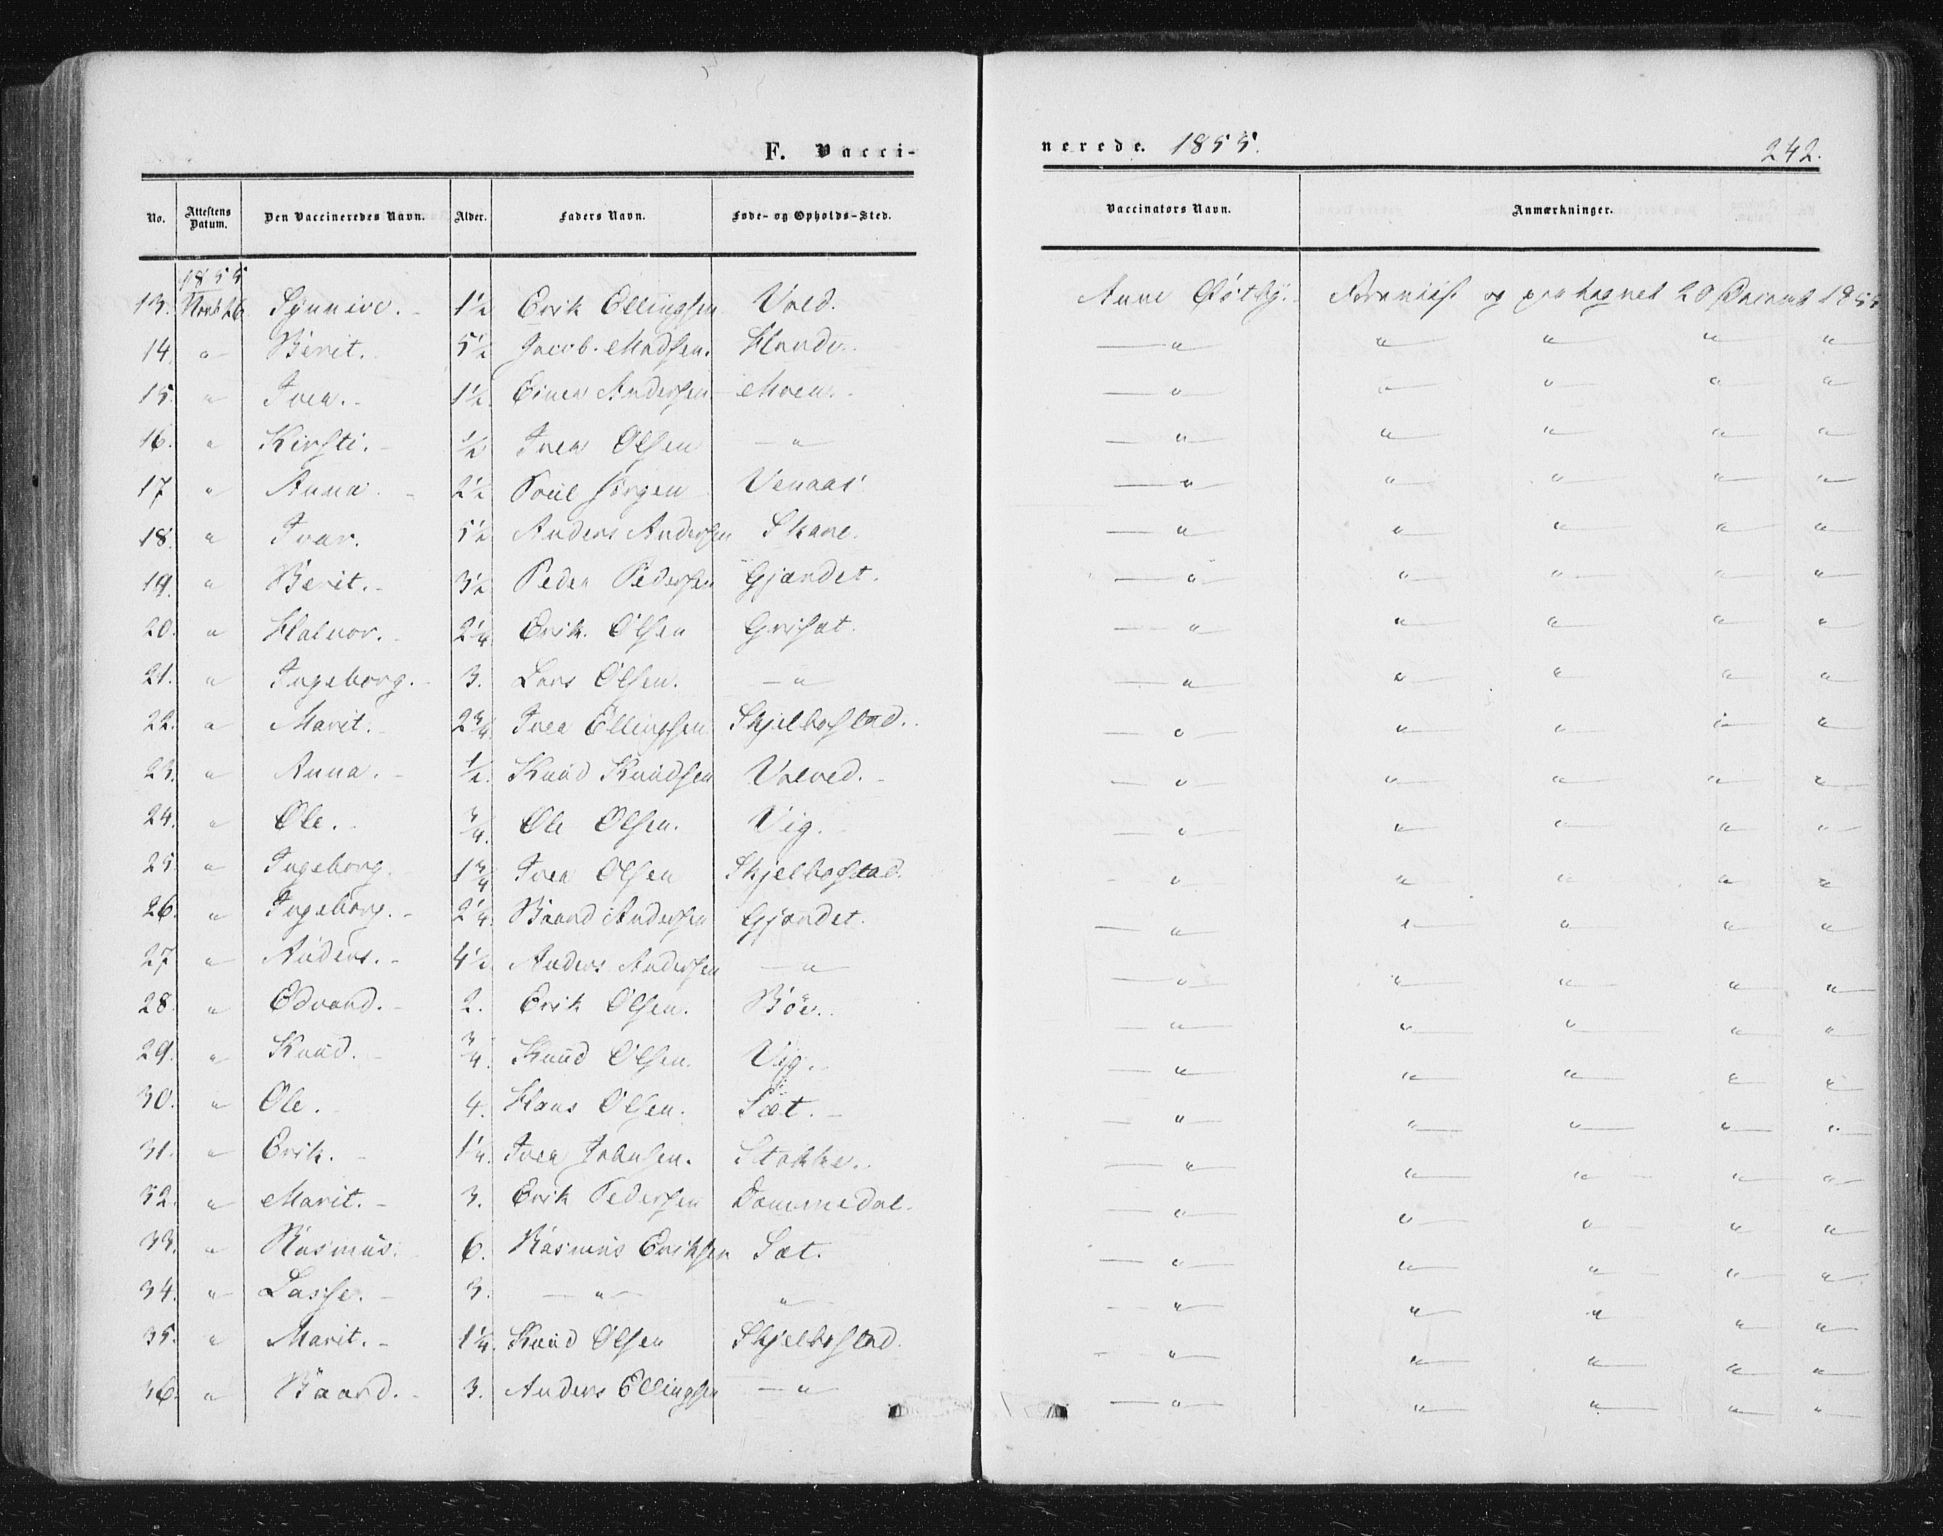 F. Vacci-
nerede. 1855.
242.
No. Attestens Datum. Den Vaccineredes Navn. Alder. Faders Navn. Føde- og Opholds-Sted. Vaccinators Navn. Anmærkninger.
1855
13. Novb 26 Synnive. 1½ Erik Ellingsen Vold. Anne Østby. og 20 1855
14. " Berit. 5½ Jacob Madsen. Hande. " " " " "
15. " Iver. 1½ Einer Andersen Moen. " " " " "
16. " Kirsti. ½ Iver Olsen " " " " " "
17 " Anna. 2½ Poul Jørgen Venaas " " " " "
18. " Ivar. 5½ Anders Andersen Skare. " " " " "
19. " Berit. 3½ Peder Pedersen Gjændet. " " " " "
20. " Halvor. 2¼ Erik Olsen Grisæt. " " " " "
21. " Ingeborg. 3. Lars Olsen. " " " " " "
22. " Marit. 2¾ Iver Ellingsen Skjelbostad. " " " " "
23. " Anna. ½. Knud Knudsen Volved. " " " " "
24. " Ole. ¾. Ole Olsen. Vig. " " " " "
25. " Ingeborg. 1¾ Iver Olsen Skjelbostad. " " " " "
26. " Ingeborg. 2¼. Baard Andersen Gjændet. " " " " "
27 " Anders. 4½ Anders Andersen " " " " " "
28. " Edvard. 2. Erik Olsen. Böe. " " " " "
29. " Knud. ¾. Knud Olsen. Vig. " " " " "
30. " Ole. 4. Hans Olsen. Sæt. " " " " "
31. " Erik. 1¼. Iver Johnsen. Stokke. " " " " "
32. " Marit. 3. Erik Pedersen Dammedal. " " " " "
33. " Rasmus. 6. Rasmus Eriksen Sæt. " " " " "
34. " Lasse. 3. " " " " " " "
35. " Marit. 1¼. Knud Olsen Skjelbostad. " " " " "
36. " Baard. 3. Anders Ellingsen " " " " " "